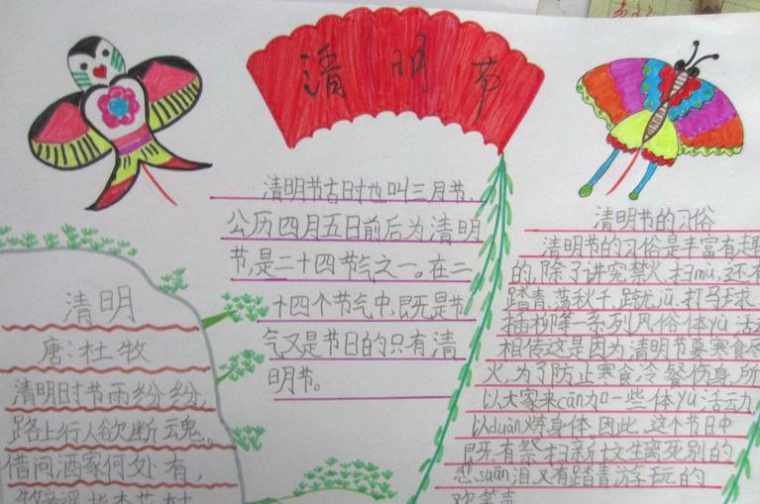 清明节
清明节古时也叫三月节,
公历四月五日前后为清明
节,是二十四节气之一。在二
十四个节气中,既是节
气又是节日的只有清
明节。
清明
唐:杜牧
清明时节雨纷纷,
路上行人欲断魂。
借问酒家何处有,
清明节的习俗
清明节的习俗是丰富有趣
的,除了讲究禁火、扫mù,还有
踏青、荡秋千、踢jū、打马球、
插柳等一系列风俗体yù活
相传这是因为清明节要寒食
火,为了防止寒食冷餐伤身,所
以大家来cān加一些体yù活动,
以duàn炼身体。因此,这个节日中
既有祭扫新坟生离死别的
悲suān泪,又有踏青游玩的
欢笑声